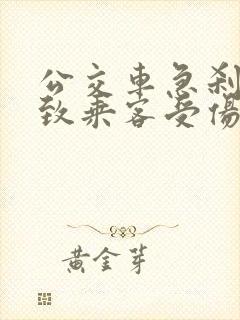 公交車急刹
致乘客受傷
黃金芽